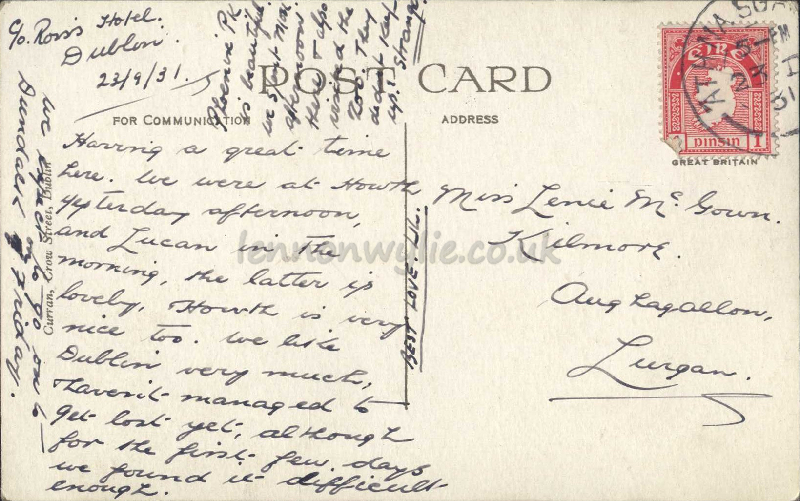 c/o Ross's Hotel.
Dublin.
23/9/31.
POST CARD
FOR COMMUNICATION
ADDRESS
Having a great time
here. We were at Howth
yesterday afternoon,
and Lucan in the
morning, the latter is
lovely. Howth is very
nice too. We like
Dublin very much,
Haven't managed to
get lost yet, although
for the first few days
we found it difficult
enough.
We expect to go on to
Dundalk Friday.
Phoenix PK
is beautiful
we spent Mon.
afternoon
there & also
visited the
Zoo. They
didn't keep
us! Strange.
BEST LOVE.
Miss Lenie McGown.
Kilmore.
Aughagallon,
Lurgan.
Curran, Crow Street, Dublin
EIRE
PINSIN 1
GREAT BRITAIN
lennonwylie.co.uk